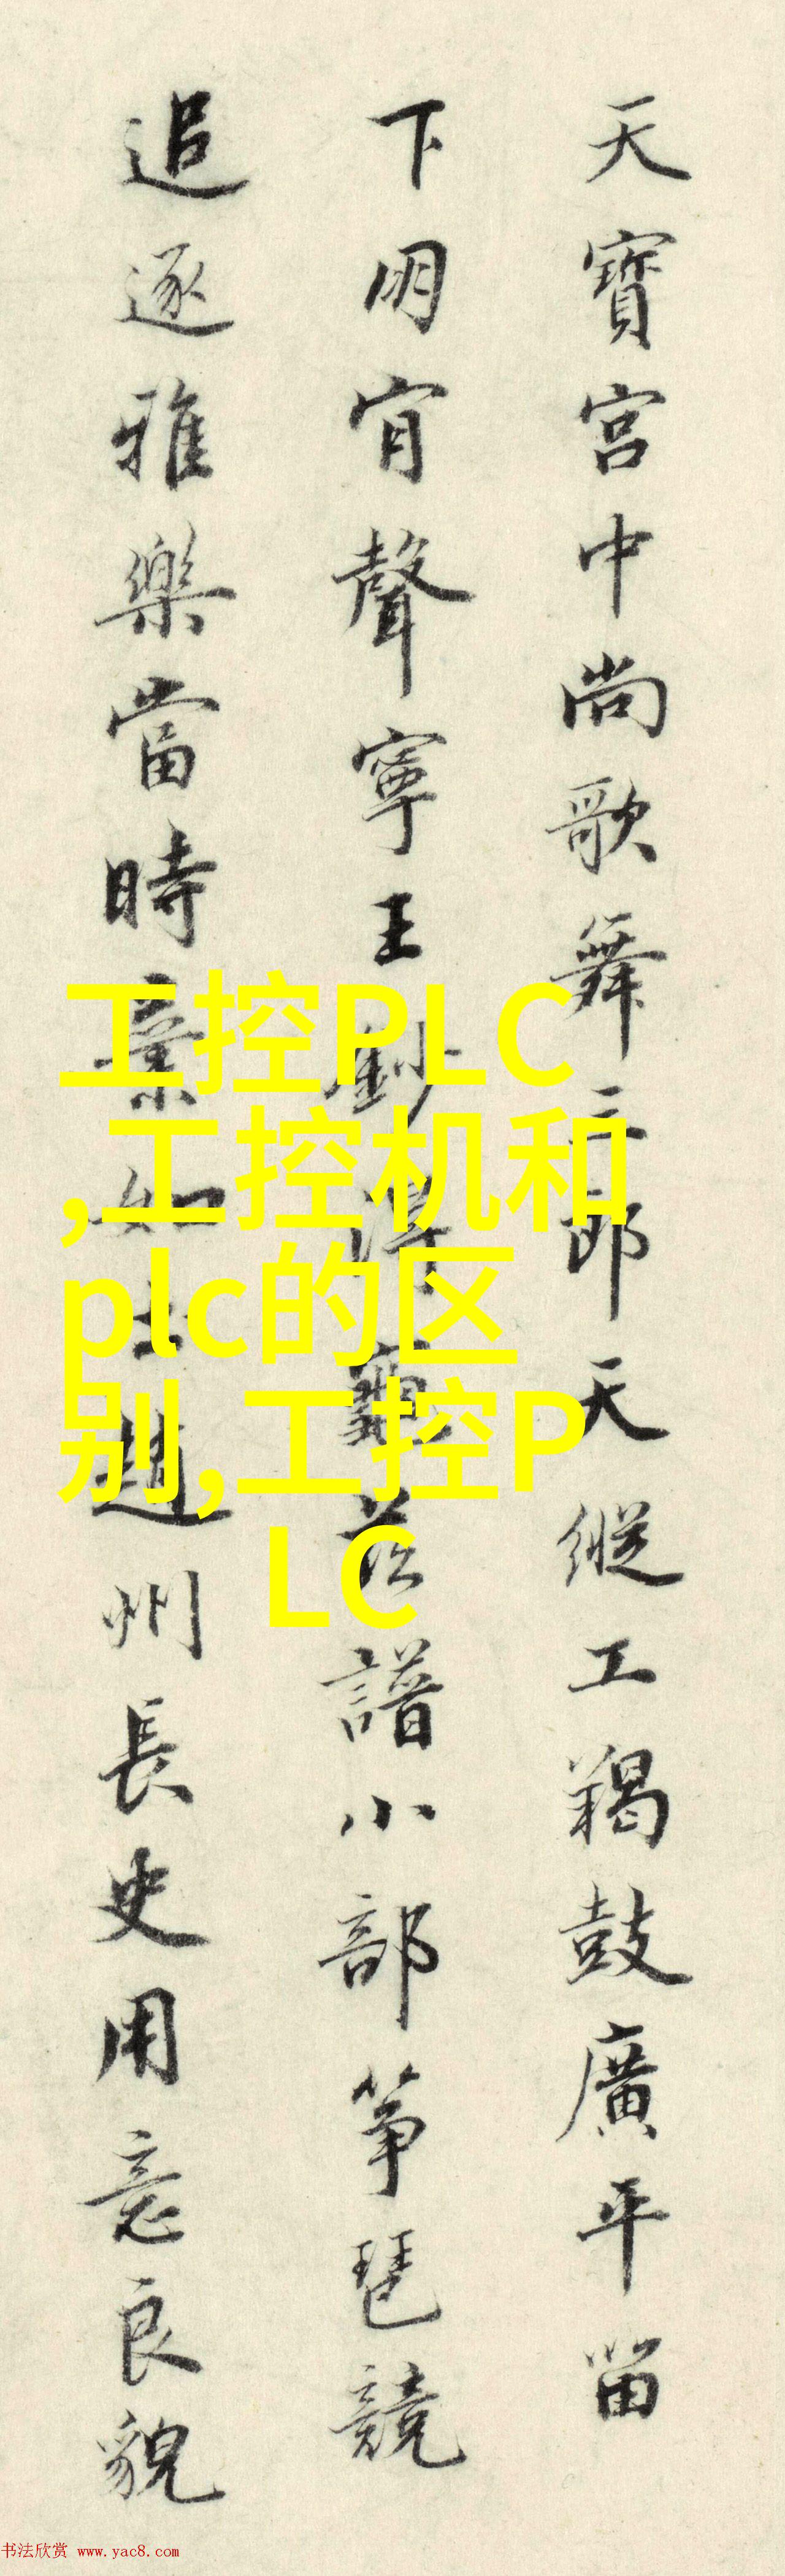 天寶宫中尚歌舞三郎天縱工羯鼓廣平留
下朋肓聲寧王
譜小部筝琶競
追逐雅樂當時
州長史用意良貌
工控PLC
,工控机和
plc的区
别,工控P
LC
书法欣赏 www.yac8.com